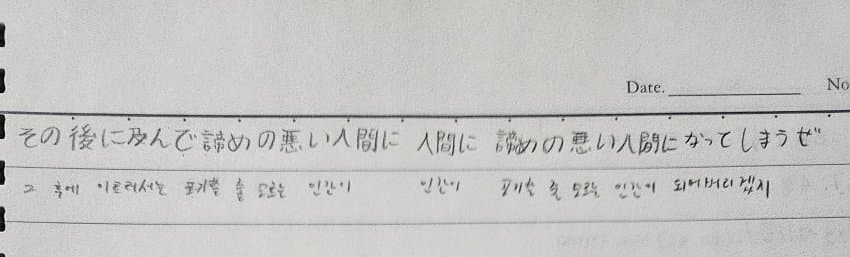 Date. No
その後に及んで諦めの悪い人間に 人間に 諦めの悪い人間になってしまうぜ
그 후에 이르러서는 포기할 줄 모르는 인간이 인간이 포기할 줄 모르는 인간이 되어버리겠지